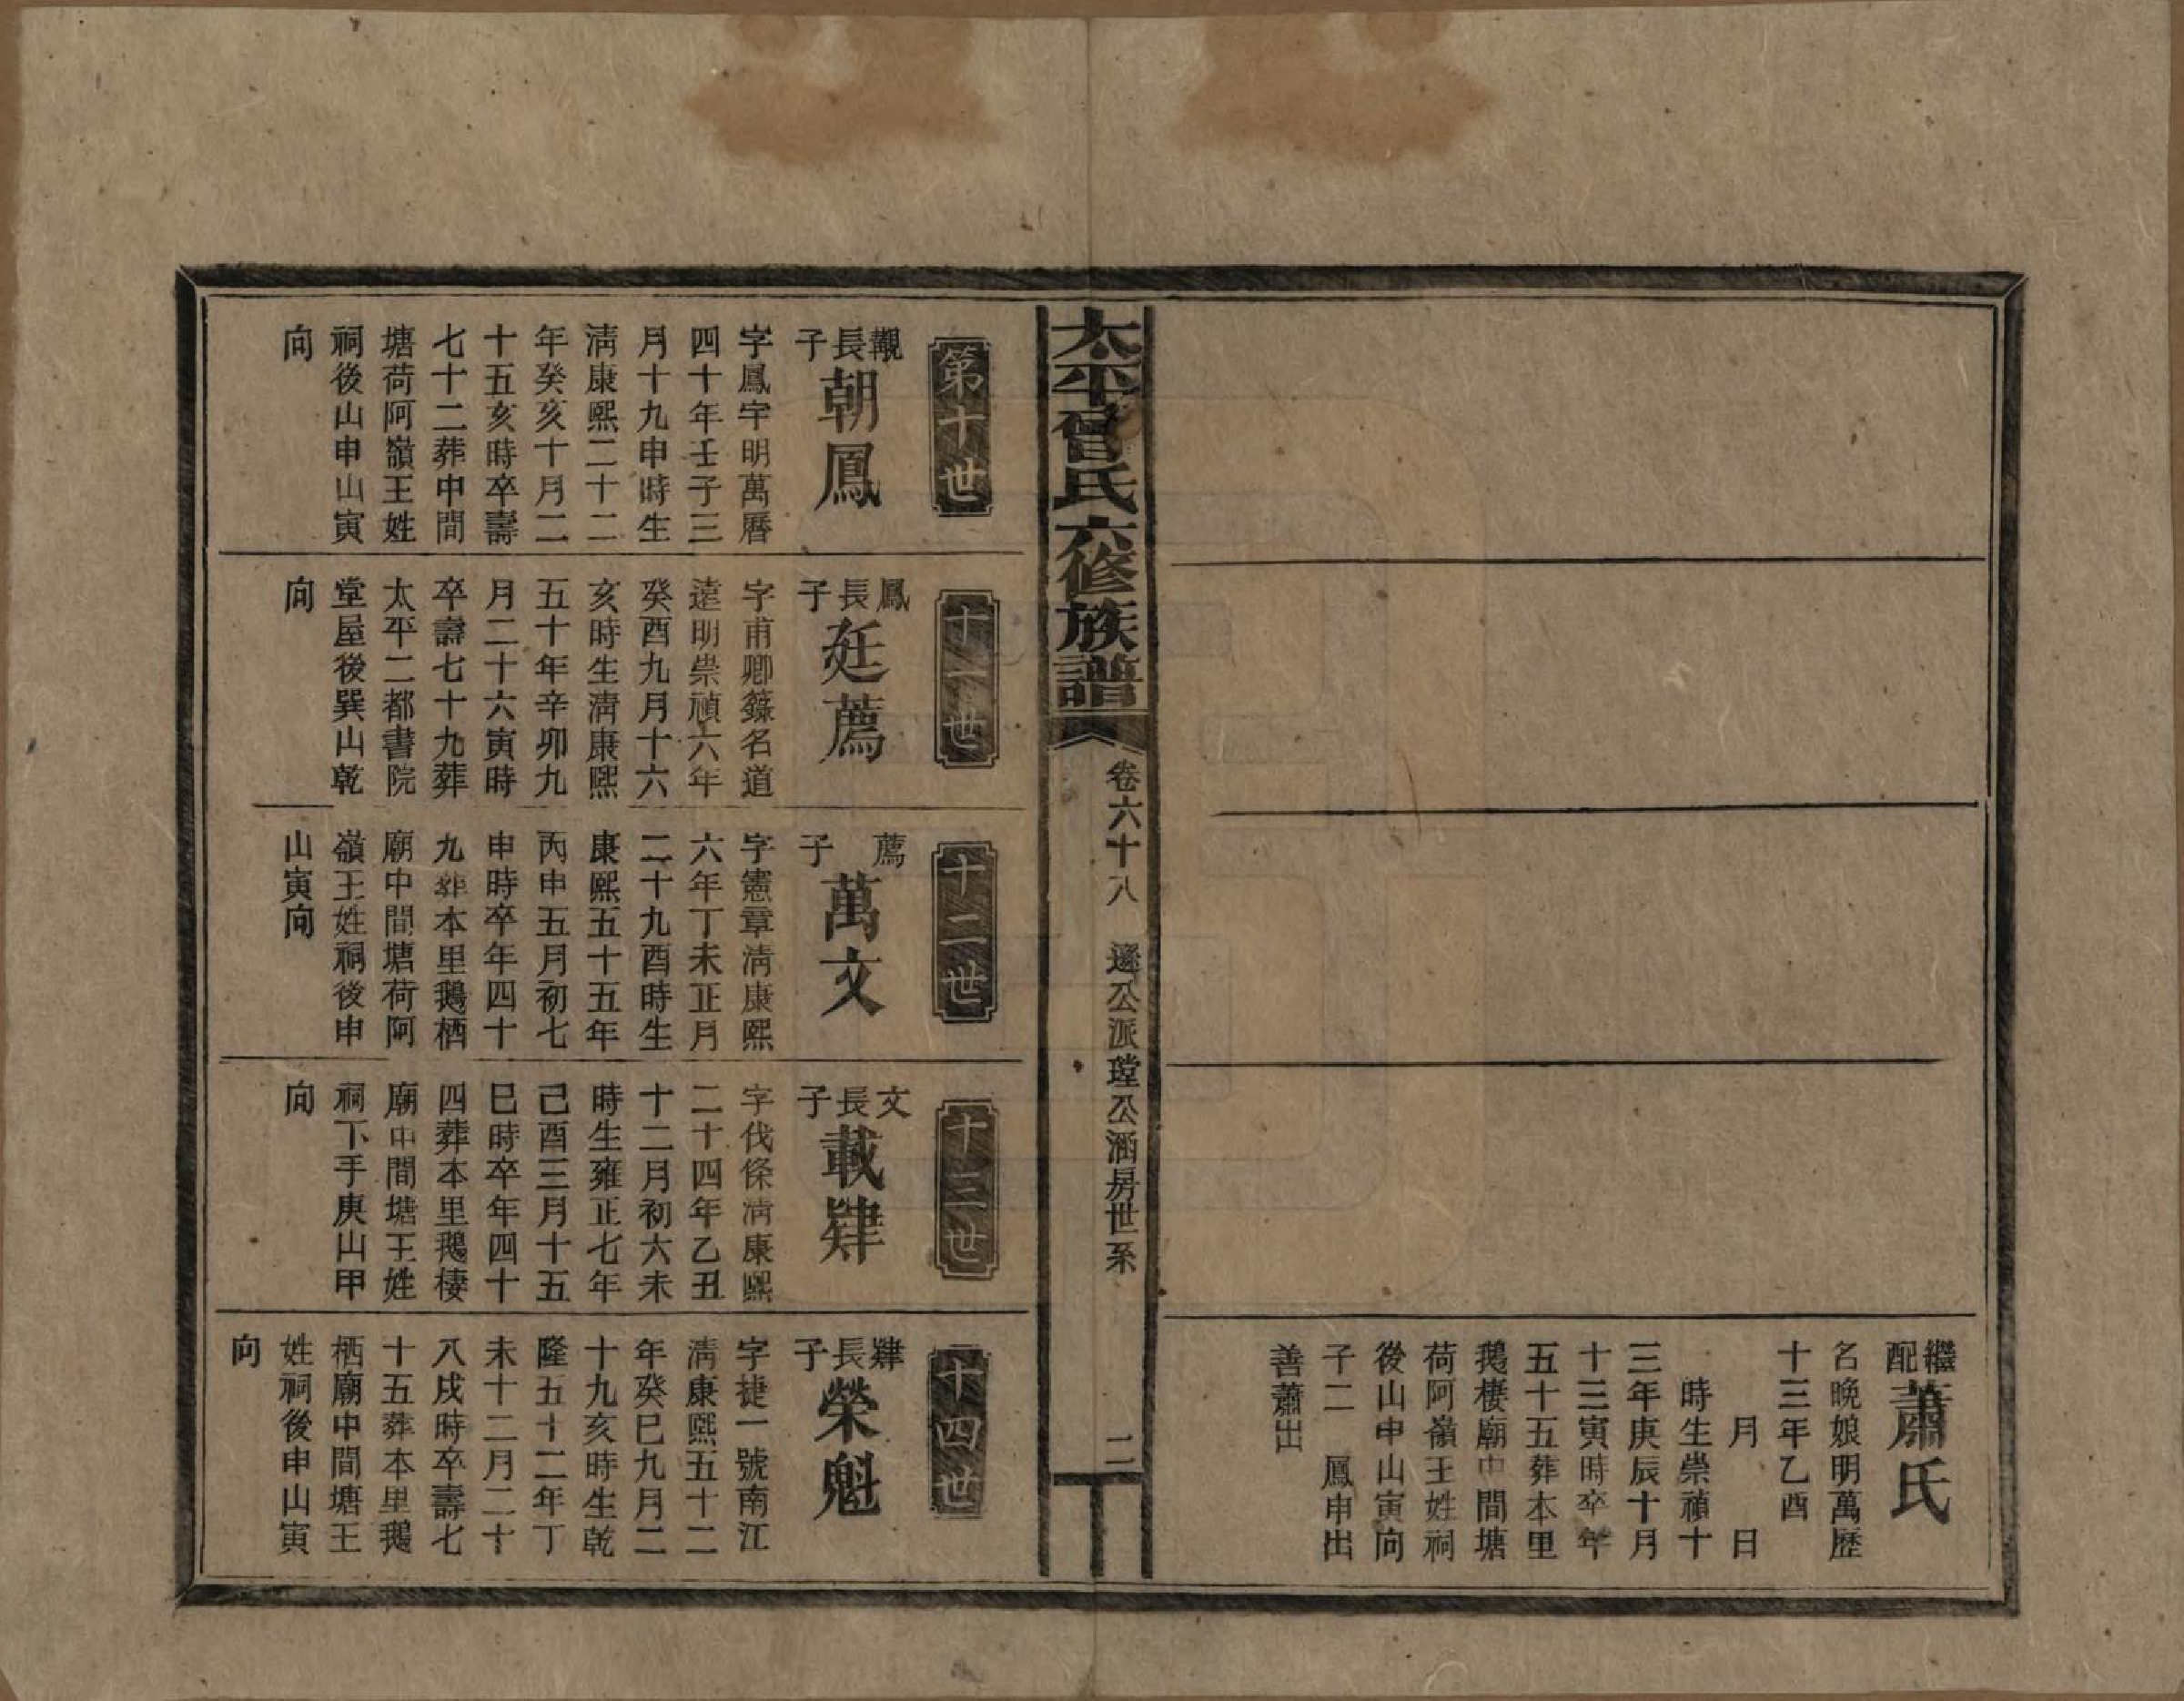 繼配蕭氏
名晚娘明萬歷
十三年乙酉
月　日
時生崇禎十
三年庚辰十月
十三寅時卒年
五十五葬本里
鵝棲廟中間塘
荷阿嶺王姓祠
後山申山寅向
子二　鳳申出
善蕭出
太平曾氏六修族譜
卷六十八　遜公派瑩公涵房世系
二
第十世
觀長子朝鳳
字鳳宇明萬曆
四十年壬子三
月十九申時生
清康熙二十二
年癸亥十月二
十五亥時卒壽
七十二葬中間
塘荷阿嶺王姓
祠後山申山寅
向
十一世
鳳長子廷薦
字甫卿籙名道
遠明崇禎六年
癸酉九月十六
亥時生清康熙
五十年辛卯九
月二十六寅時
卒壽七十九葬
太平二都書院
堂屋後巽山乾
向
十二世
薦子萬文
字憲章清康熙
六年丁未正月
二十九酉時生
康熙五十五年
丙申五月初七
申時卒年四十
九葬本里鵝栖
廟中間塘荷阿
嶺王姓祠後申
山寅向
十三世
文長子載肄
字伐條清康熙
二十四年乙丑
十二月初六未
時生雍正七年
己酉三月十五
巳時卒年四十
四葬本里鵝棲
廟中間塘王姓
祠下手庚山甲
向
十四世
肄長子榮魁
字捷一號南江
清康熙五十二
年癸巳九月二
十九亥時生乾
隆五十二年丁
未十二月二十
八戌時卒壽七
十五葬本里鵝
栖廟中間塘王
姓祠後申山寅
向